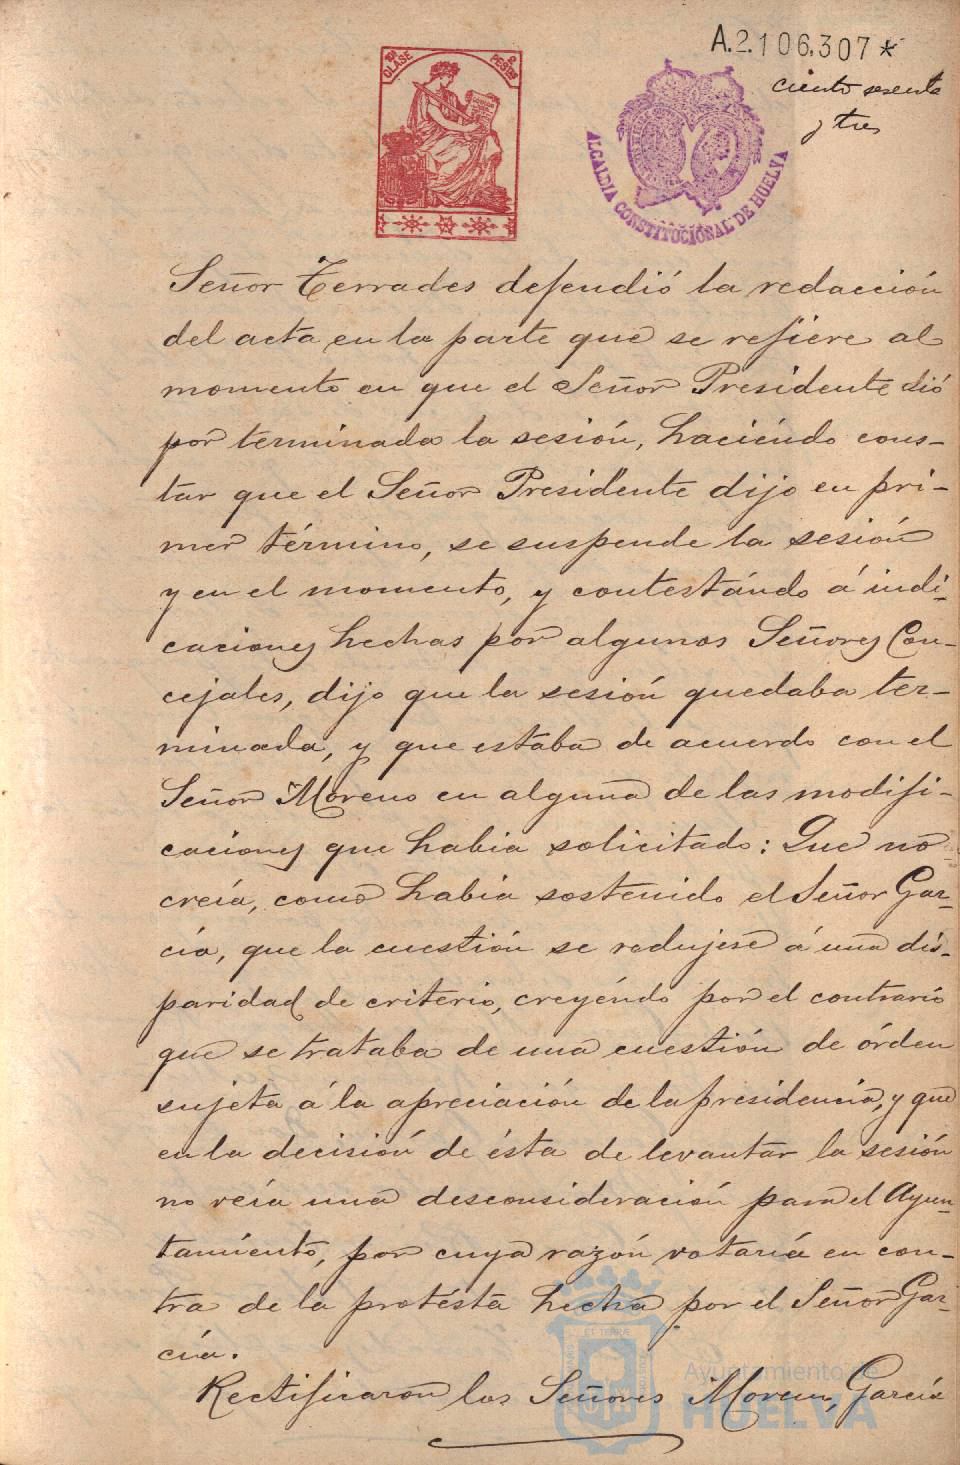 A.2.106.307 *
ciento sesenta
y tres
10ª CLASE
2 PESETAS
ALCALDIA CONSTITUCIONAL DE HUELVA
Señor Terrades defendió la redacción
del acta en la parte que se refiere al
momento en que el Señor Presidente dió
por terminada la sesión, haciéndo cons-
tar que el Señor Presidente dijo en pri-
mer término, se suspende la sesión
y en el momento, y contestándo á indi-
caciones hechas por algunos Señores Con-
cejales, dijo que la sesión quedaba ter-
minada, y que estaba de acuerdo con el
Señor Moreno en alguna de las modifi-
caciones que habia solicitado: Que no
creía, como habia sostenido el Señor Gar-
cía, que la cuestión se redujese á una dis-
paridad de criterio, creyéndo por el contrario
que se trataba de una cuestión de órden
sujeta á la apreciación de la presidencia, y que
en la decisión de ésta de levantar la sesión
no veía una desconsideración para el Ayun-
tamiento, por cuya razón votaría en con-
tra de la protésta hecha por el Señor Gar-
cía.
Rectificaron los Señores Moreno, García
Ayuntamiento de
HUELVA